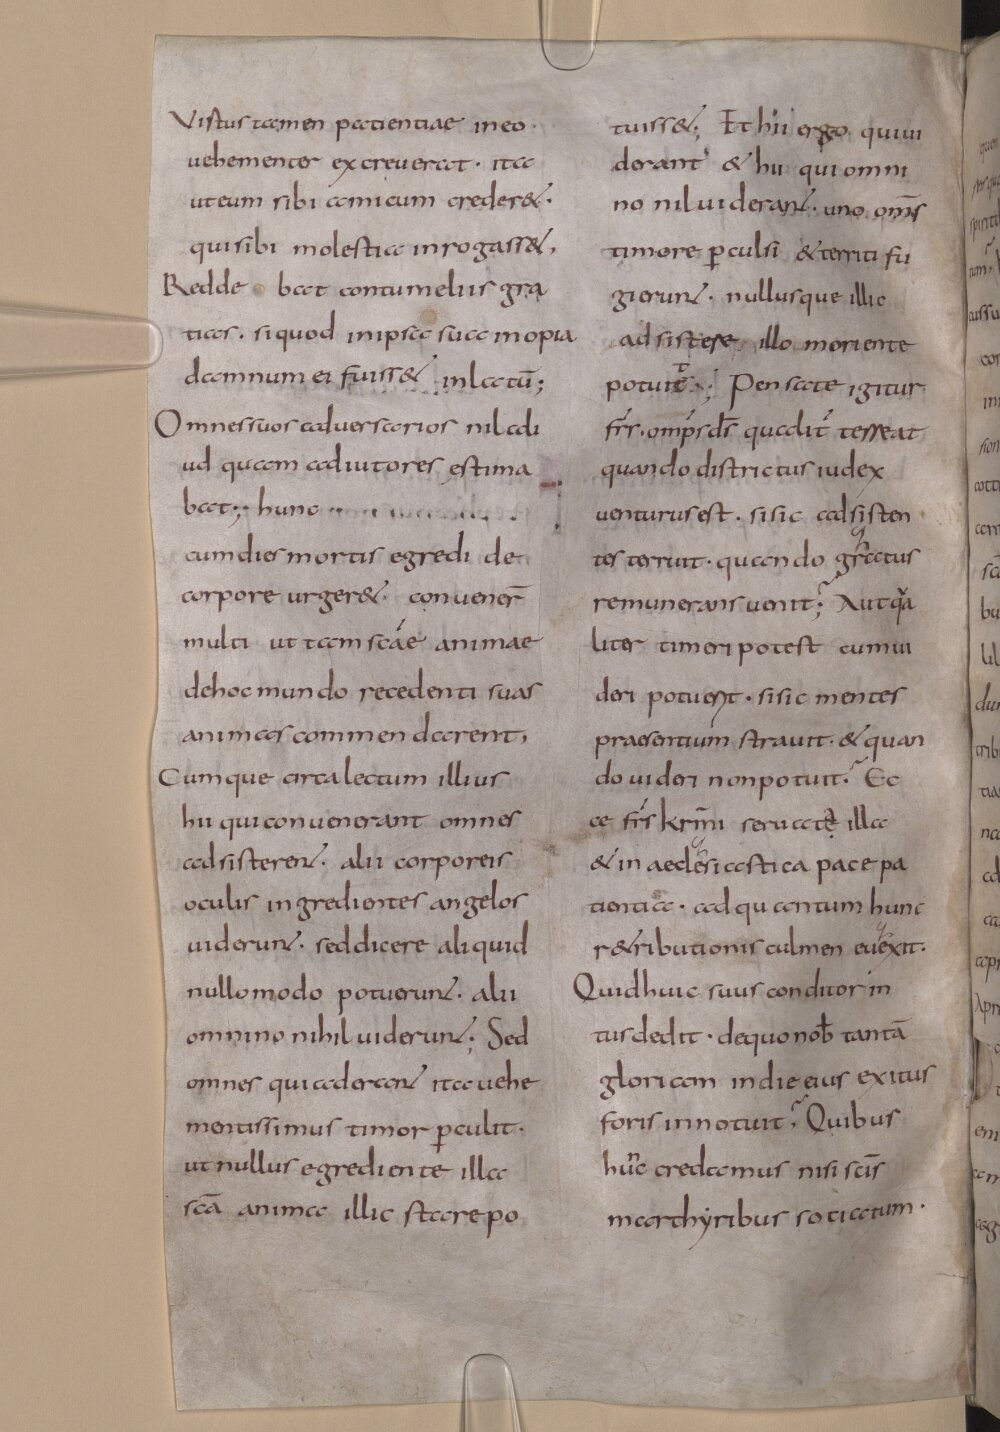 Vistus tamen patientiae in eo
uehementer excreuerat. ita
ut eum sibi amicum creder&.
qui sibi molestia inrogass&,
Redde bat contumeliis gra
tias. si quod in ipsa sua inopia
damnum ei fuiss& inlatū;
Omnes suos aduersarios nil adi
ud quam adiutores estima
bat; hunc
cum dies mortis egredi de
corpore urger&. conuener̄
multi ut tam scáe animae
de hoc mundo recedenti suas
animas commendarent,
Cumque circa lectum illius
hii qui conuenerant omnes
adsisteren&. alii corporeis
oculis ingredientes angelos
uiderun&. sed dicere aliquid
nullo modo potuerun&. alii
omnino nihil uiderun&; Sed
omnes qui aderan& ita uehe
mentissimus timor ꝑculit.
ut nullus egrediente illa
scā anima illic stare po
tuiss&; Et hii ergo qui ui
derant & hii qui omni
no nil uideran&. uno om̄s
timore ꝑculsi & territi fu
gierun&. nullusque illic
adsistere illo moriente
potuit; Pensate igitur
fr̄s. omp̄s d̄s qualit̄ terreat
quando districtus iudex
uenturus est. si sic adsisten
tes terruit. quando gratus
remunerans uenit; Aut qua
liter timeri potest cum ui
deri potuerit. si sic mentes
praesentium strauit. & quan
do uideri non potuit; Ec
ce fr̄s kr̄mi seruata illa
& in aeclesiastica pace pa
tientia. ad quantum hunc
r&ributionis culmen euexit.
Quid huic suus conditor in
tus dedit. de quo nob̄ tantā
gloriam in die eius exitus
foris innotuit; Quibus
hunc credamus nisi sc̄is
marthyribus sociatum.